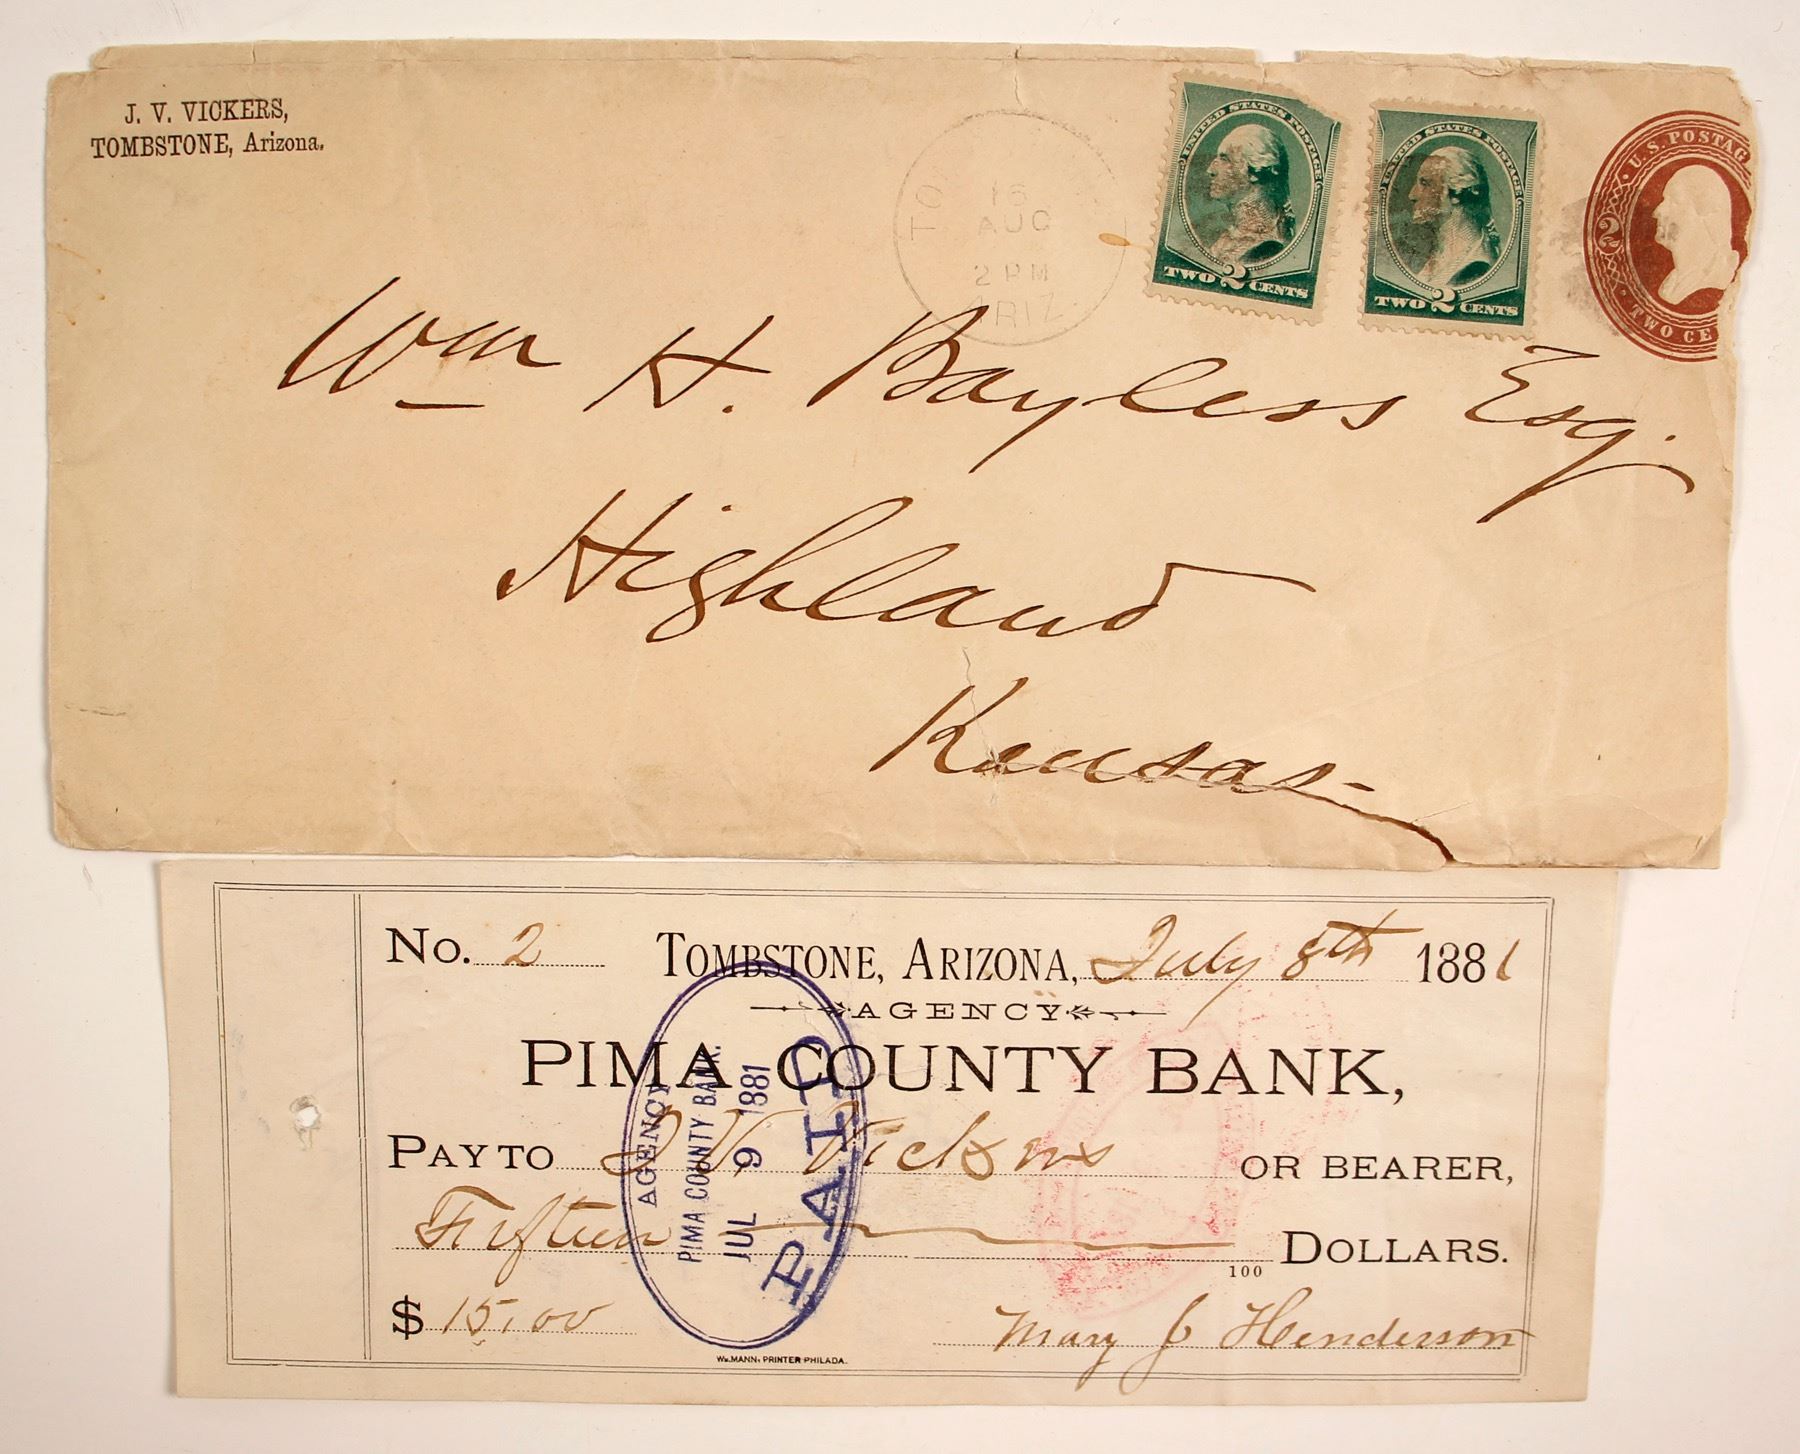 J. V. VICKERS,
TOMBSTONE, Arizona.
TO
16
AUG
2 PM
ARIZ.
UNITED STATES POSTAGE
TWO 2 CENTS
UNITED STATES POSTAGE
TWO 2 CENTS
U.S. POSTAG
2
TWO CE
Wm H. Bayless Esq.
Highland
Kansas
No. 2 TOMBSTONE, ARIZONA, July 8th 1881
AGENCY
PIMA COUNTY BANK,
PAY TO J. V. Vickers OR BEARER,
Fifteen 100 DOLLARS.
$ 15.00 Mary J Henderson
WM. MANN, PRINTER PHILADA.
AGENCY
PIMA COUNTY BANK.
JUL 9 1881
PAID